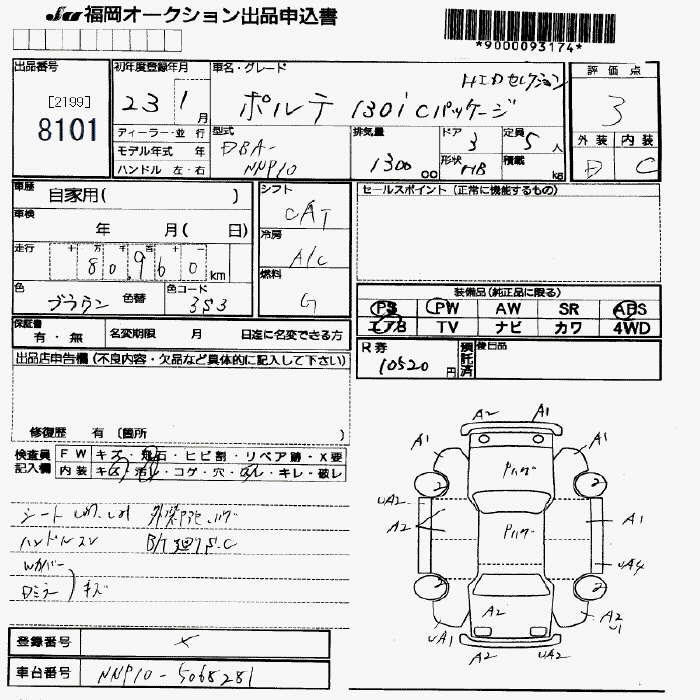 福岡オークション出品申込書
*9000093174*
出品番号
[2199]
8101
初年度登録年月
23 1月
ディーラー・並 行
モデル年式 年
ハンドル 左・右
車名・グレード
HIDセレクション
ポルテ 130i Cパッケージ
型式
DBA-
NNP10
排気量
1300 cc
ドア
3
形状
HB
定員
5人
積載
kg
評価点
3
外装 内装
D C
車歴
自家用( )
車検
年 月( 日)
走行
十 万 千 百 十 一
80,960 km
色
ブラウン 色替
色コード
3S3
シフト
CAT
冷房
A/C
燃料
G
セールスポイント(正常に機能するもの)
装備品(純正品に限る)
PS PW AW SR ABS
エアB TV ナビ カワ 4WD
保証書
有・無
名変期限 月 日迄に名変できる方
R券
10520円
預託済
後日品
出品店申告欄(不良内容・欠品など具体的に記入して下さい)
修復歴 有 〔箇所 〕
検査員記入欄
FW キズ・飛石・ヒビ割・リペア跡・X要
内装 キズ・汚レ・コゲ・穴・ハレ・キレ・破レ
シート
ハンドルスレ
Wカバー
Dミラー
キズ
登録番号
車台番号
NNP10-5068281
A2 A1
A1 A1
Pハゲ
2 2
uA2
A2 A1
Pハゲ
uA4
2 2
A2
uA1
A2
u1
A2 uA2